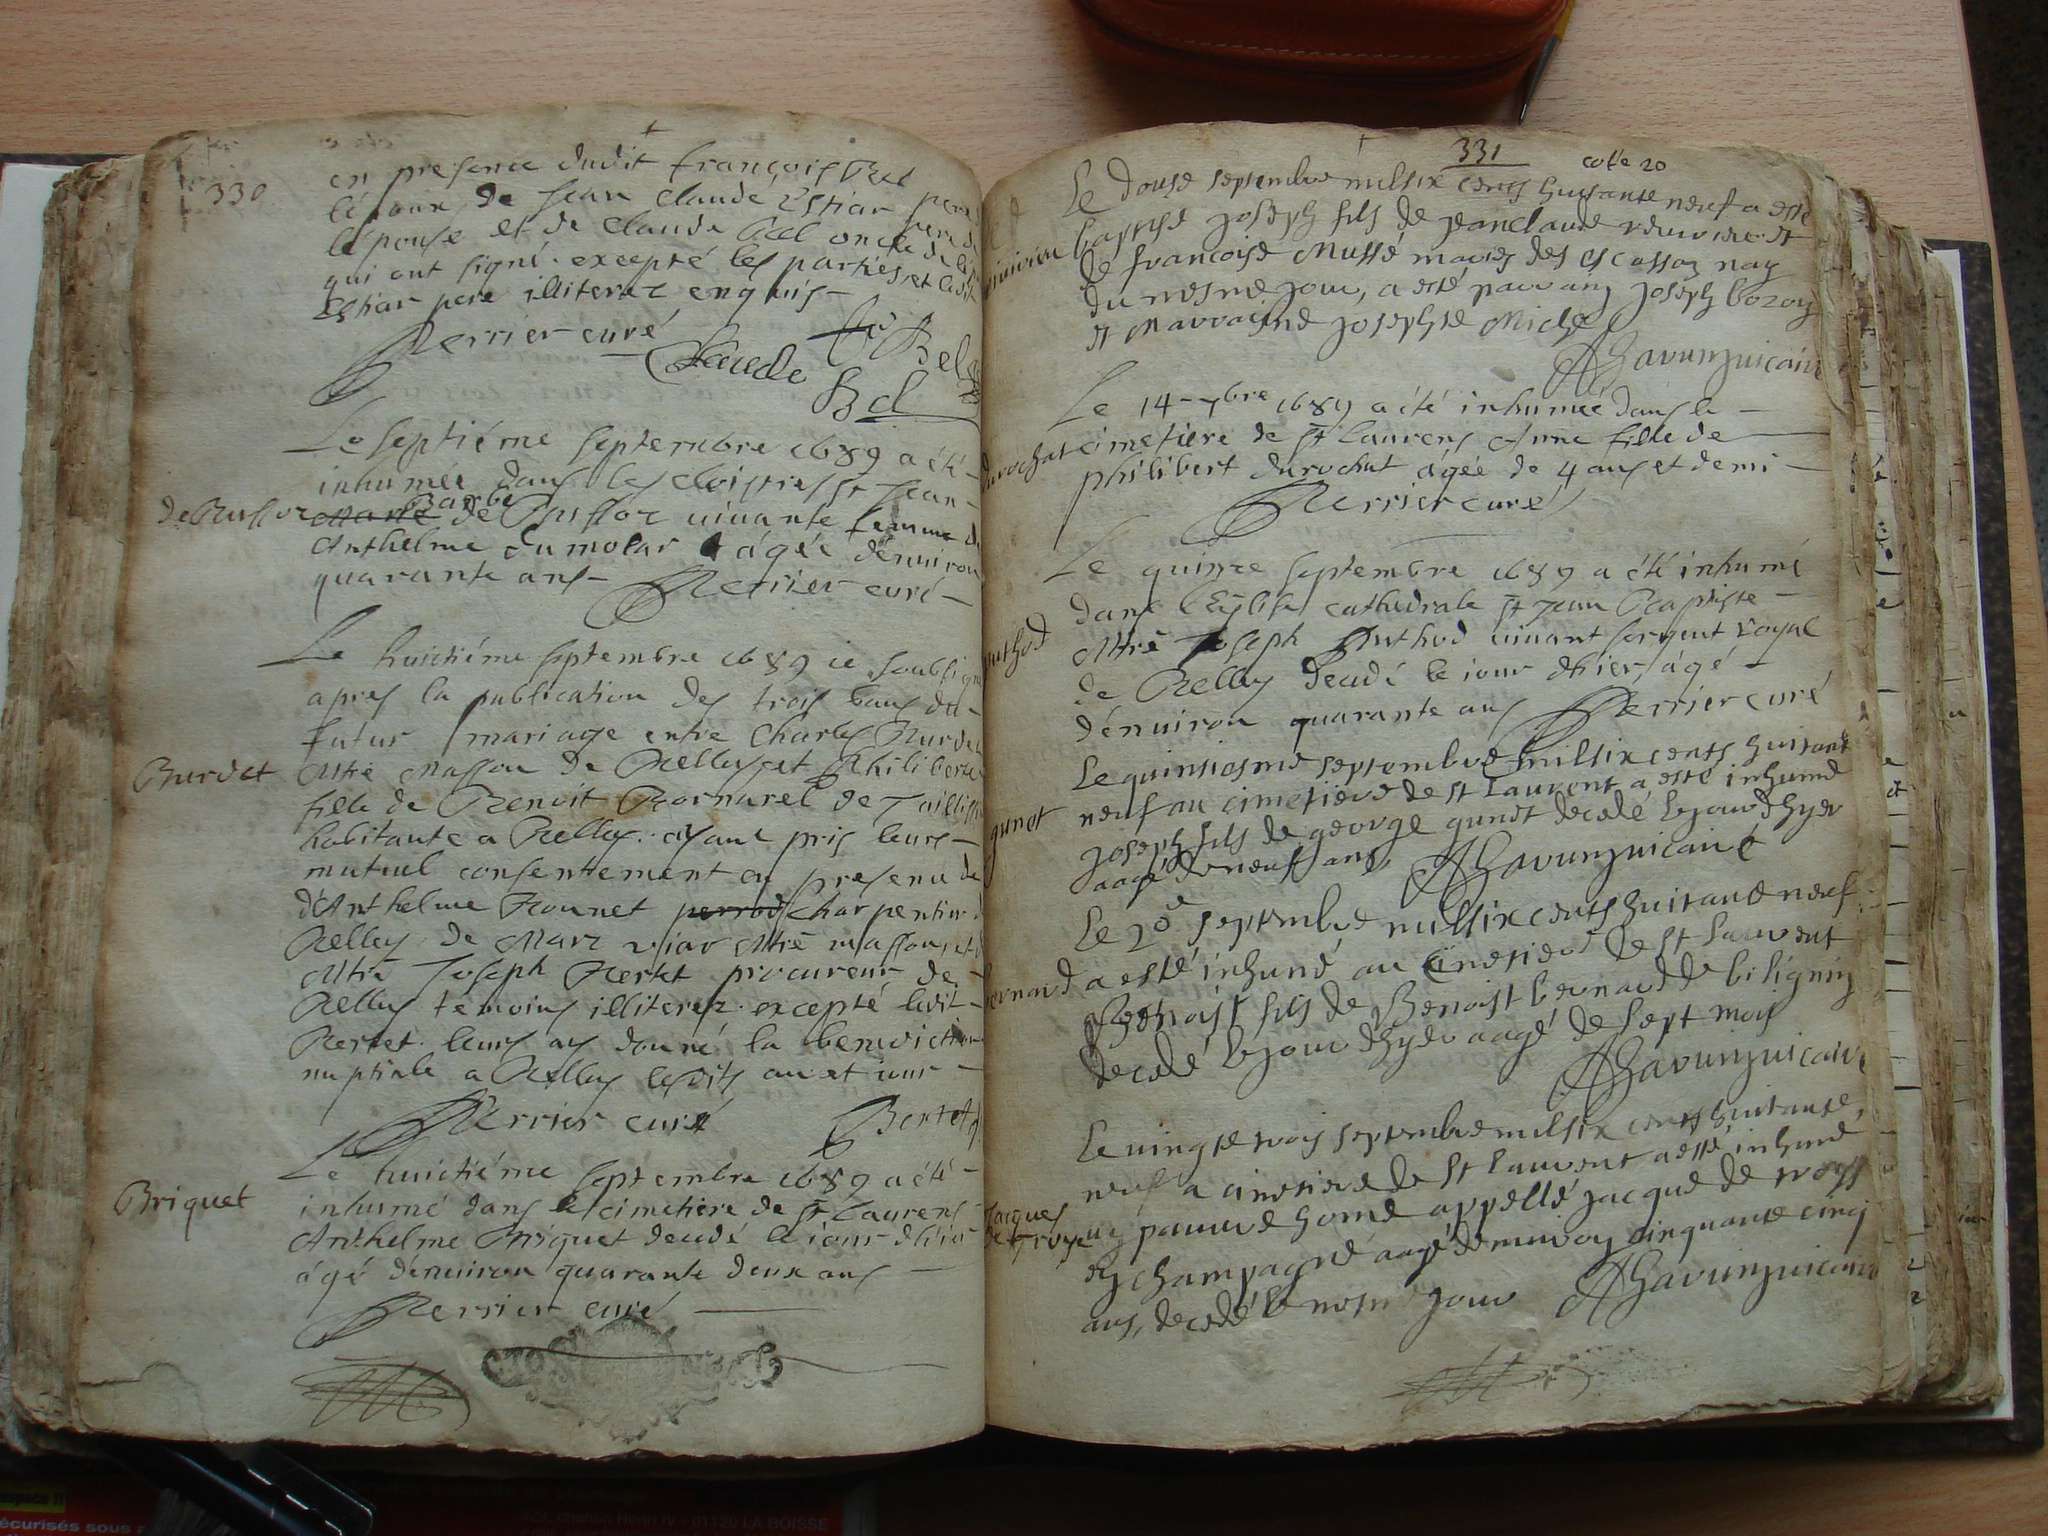 330
en presence dudit françois Bel
l'époux de Jean Claude Estiar pere de
l'épouse et de Claude Bel oncle de
qui ont signé excepté les parties et ledit
Estiar pere illiterez enquis
Perrier curé
Claude Bel
Bel
Le septiéme septembre 1689 a été
inhumée dans les cloistres St Jean
de Pusloz
Barbe
Marie de Pusloz vivante femme de
Anthelme Dumolar âgée dénuiron
quarante ans Perrier curé
Le huictiéme septembre 1689 ie soubsigné
apres la publication des trois bans du
futur mariage entre Charles Burdet
Burdet
Mtre Masson de Belley et Philiberte
fille de Benoit
habitante a Belley ayant pris leurs
mutuel consentement en presence de
d'Anthelme Bonnet perrod charpentier
Belley de Marc viar Mtre masson et
Mtre Joseph Bertet procureur de
Belley temoins illiterez excepté ledit
Bertet leurs ay donné la benediction
nuptiale a Belley lesdits an et iour
Perrier curé
Bertet
Le huictiéme septembre 1689 a été
Briquet
inhumé dans le cimetiere de St Laurens
Anthelme Briquet decedé le iour d'hier
âgé denuiron quarante deux ans
Perrier curé
331
cote 20
Le douse septembre mil six cents huitante neuf a esté
baptisé Joseph fils de Jeanclaude
de francoise Mussé mariés des escassaz nay
du mesme jour, a esté parrain Joseph bozon
et marraine Josephte Miche
vicaire
Le 14 7bre 1689 a été inhumée dans le
durochat
cimetiere de St Laurens Anne fille de
philibert durochat âgée de 4 ans et demi
Perrier curé
Le quinze septembre 1689 a été inhumé
dans l'Eglise cathedrale St Jean Baptiste
Authod
Mtre Joseph Authod vivant sergent royal
de Belley decedé le iour d'hier, âgé
dénuiron quarante ans Perrier curé
Le quinsiesme septembre mil six cents huitant
neuf au cimetiere de St Laurent a esté inhumé
gunet
Joseph fils de george gunet decedé le jour d'hyer
aagé de neuf ans, vicaire
Le 20e septembre mil six cents huitante neuf
bernard
a esté inhumé au cimetiere de St Laurent
Benoist fils de Benoist bernard de bilignin
decedé le jour d'hyer aagé de sept mois
vicaire
Le vingt trois septembre mil six cents huitante
neuf a cimetiere de St Laurent a esté inhumé
Jacques
de Troye
un pauvre home appellé Jacque de troys
en champagne aagé denuiron cinquante cinq
ans, decedé le mesme jour vicaire
01120 LA BOISSE